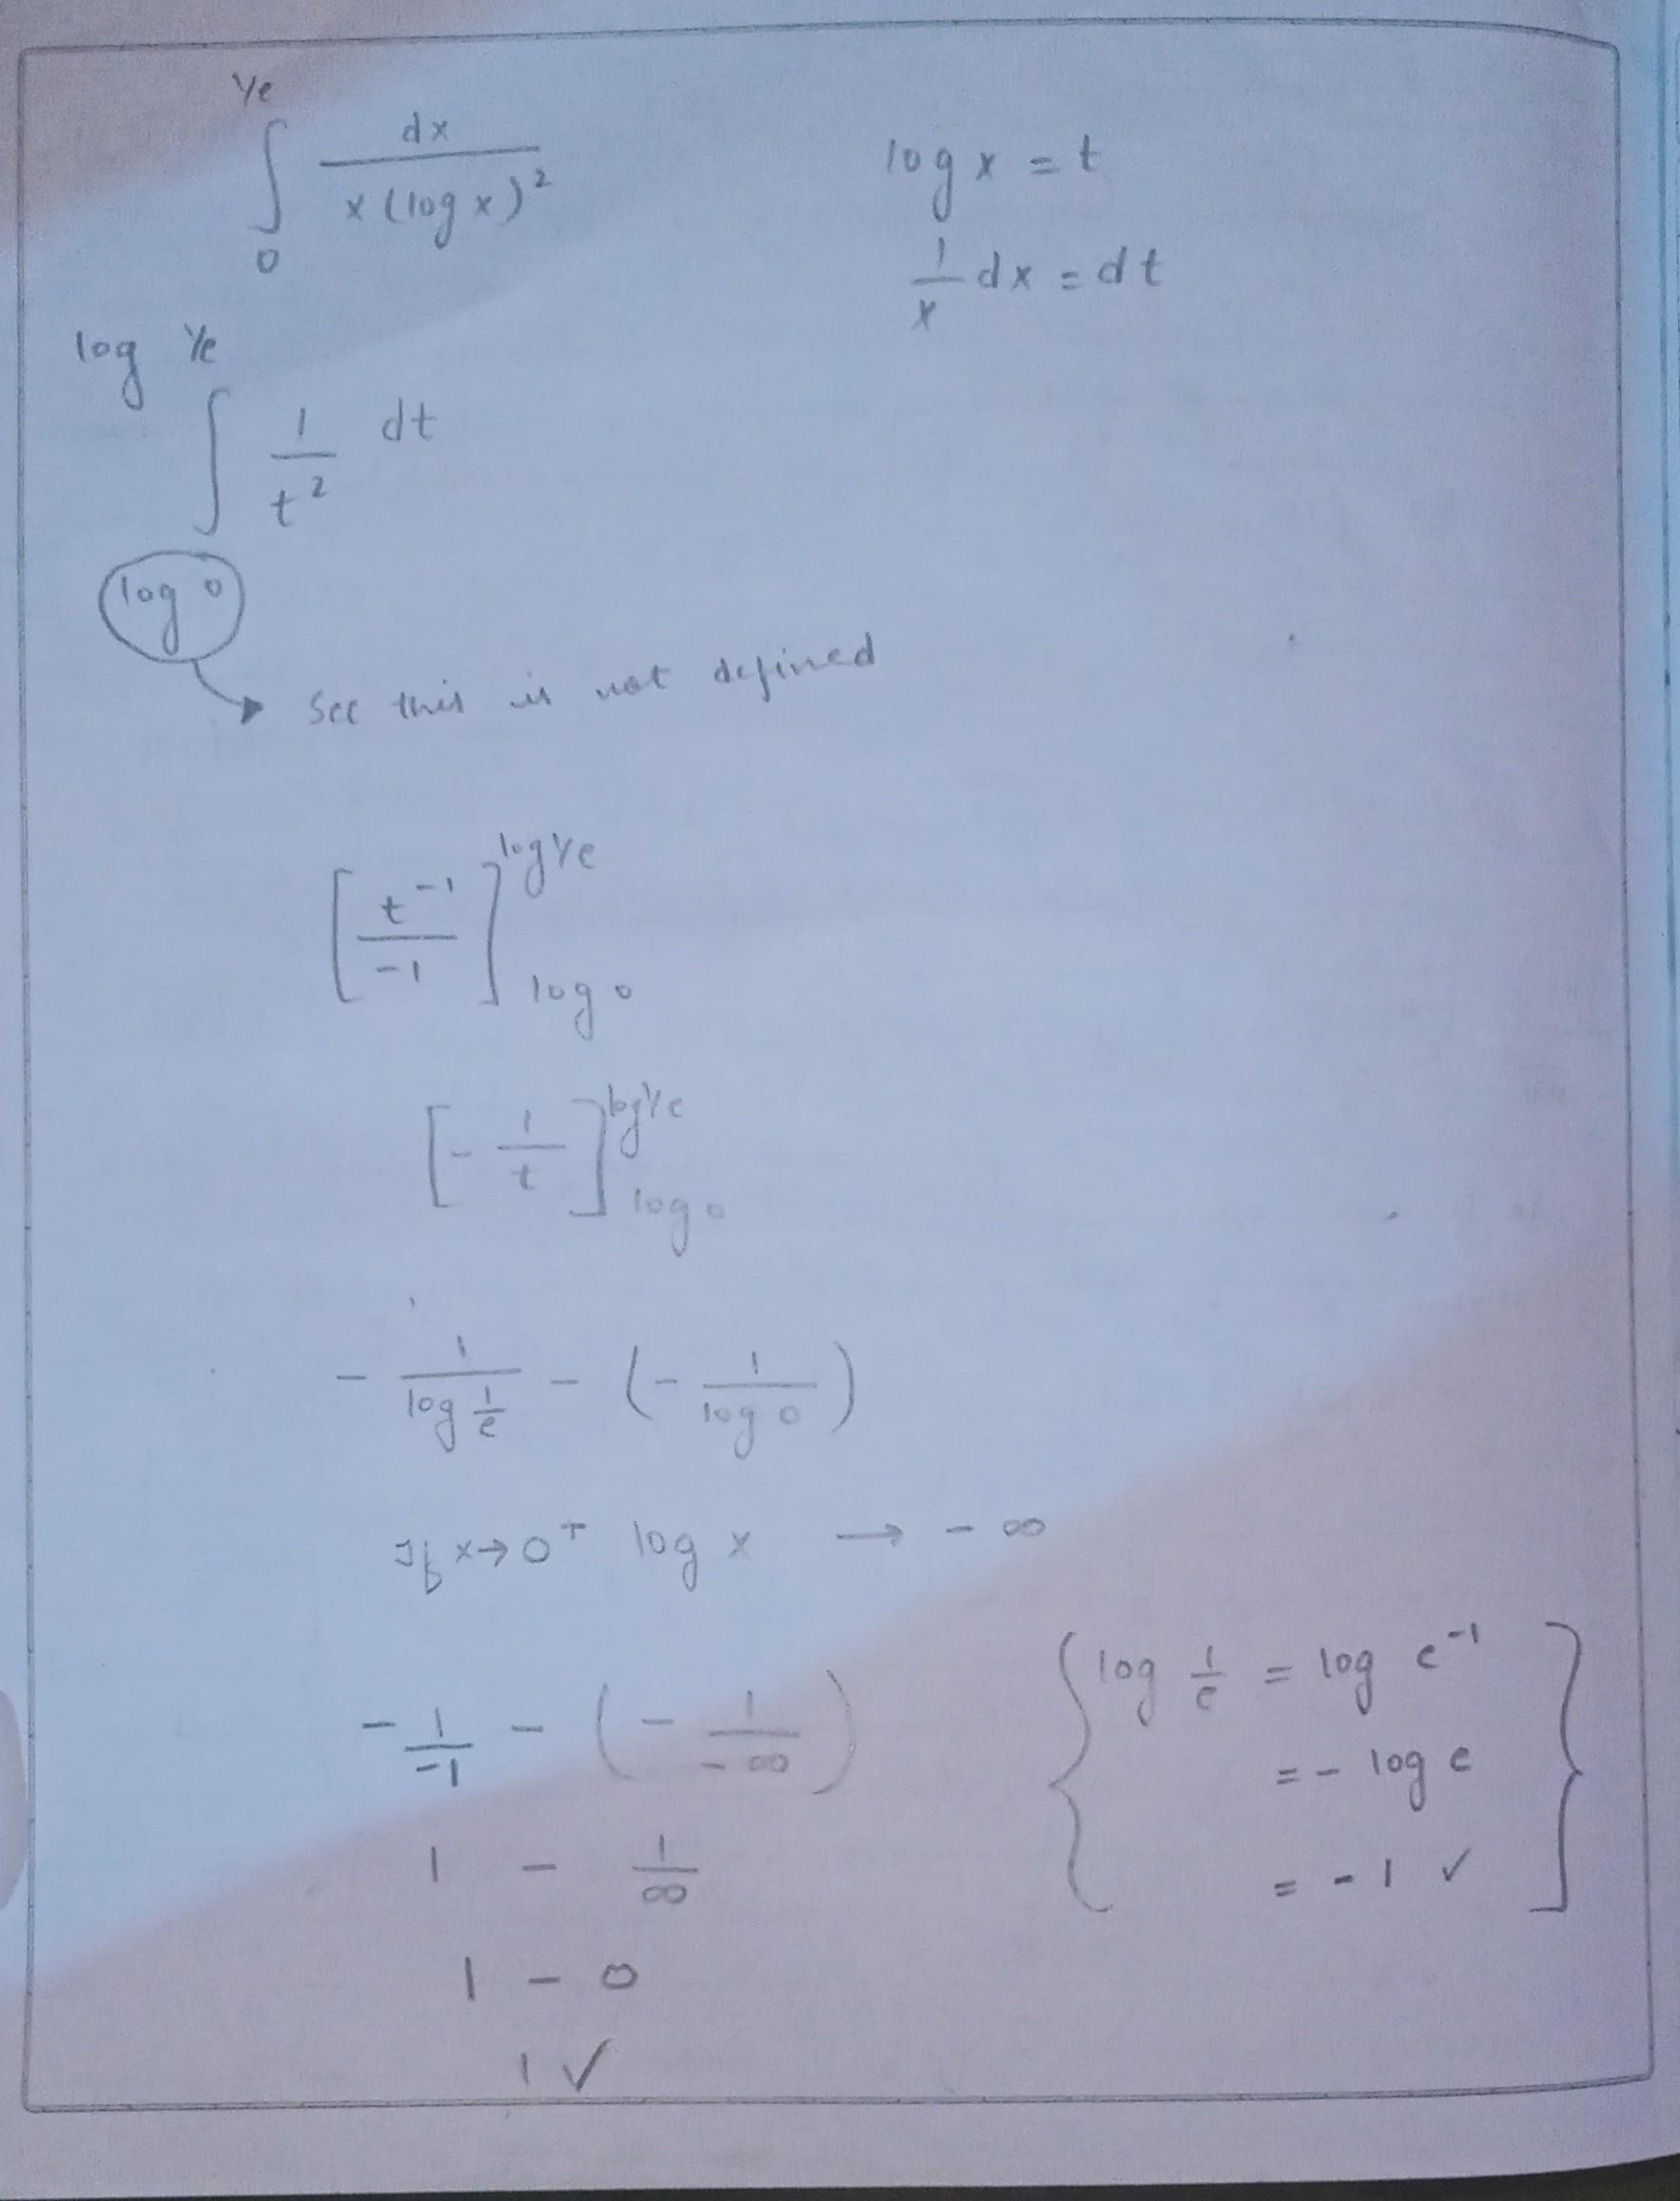 ∫₀^(1/e) dx / x(log x)²
log x = t
1/x dx = dt
∫_(log 0)^(log 1/e) 1/t² dt
See this is not defined
[t⁻¹/-1]_(log 0)^(log 1/e)
[-1/t]_(log 0)^(log 1/e)
- 1/(log 1/e) - (- 1/(log 0))
If x→0⁺ log x → -∞
- 1/-1 - (- 1/-∞)
1 - 1/∞
1 - 0
1 ✓
{log 1/e = log e⁻¹
= - log e
= - 1 ✓}